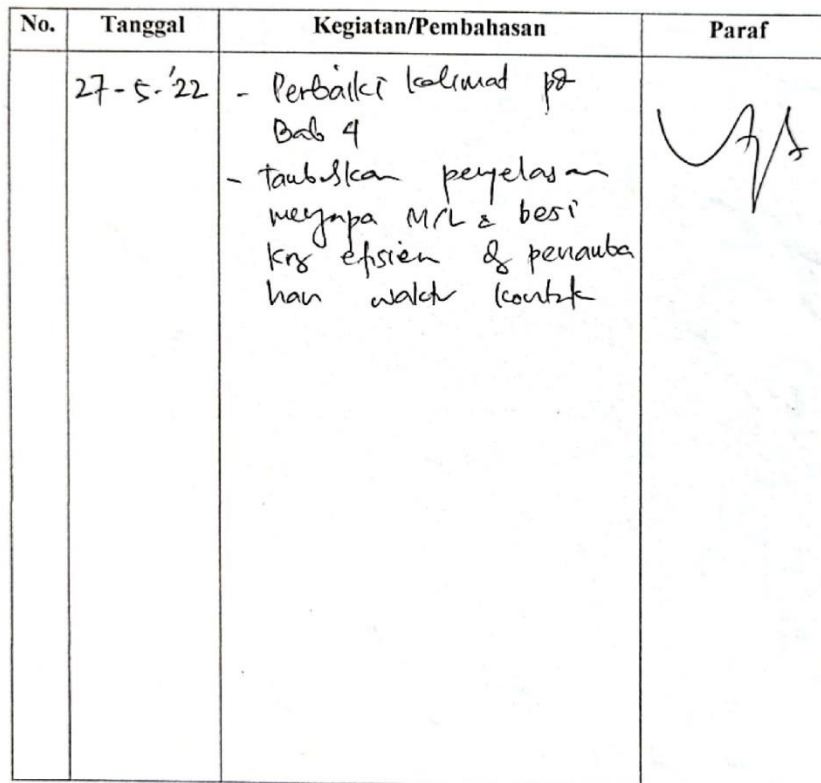 No. Tanggal Kegiatan/Pembahasan Paraf
27-5-'22 - Perbaiki kalimat pd
Bab 4
- tambahkan penjelasan
mengapa M/L & besi
krg efisien dg penamba
han waktu kontak